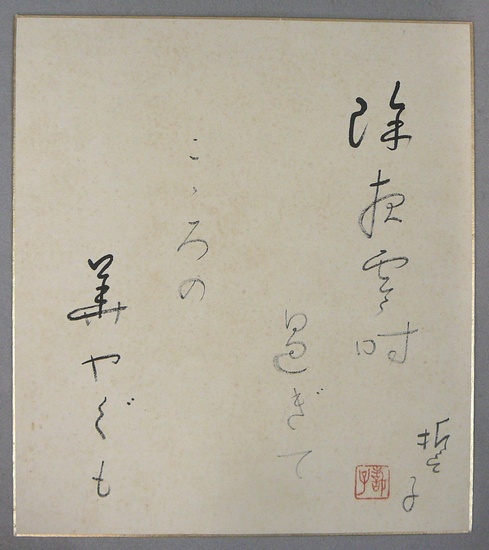 除夜零時
過ぎて
こゝろの
華やぐも
哲子